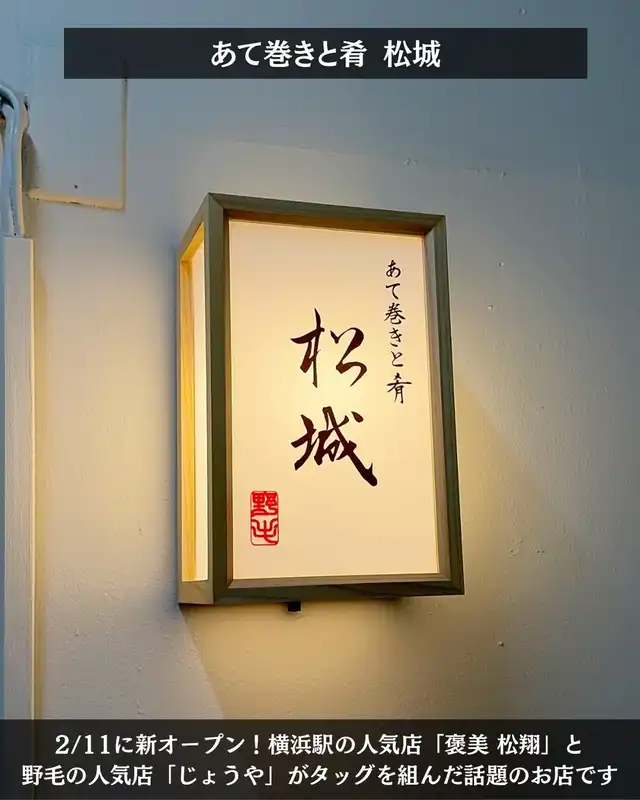 あて巻きと肴 松城
あて巻きと肴
松城
野毛
2/11に新オープン！横浜駅の人気店「褒美 松翔」と
野毛の人気店「じょうや」がタッグを組んだ話題のお店です